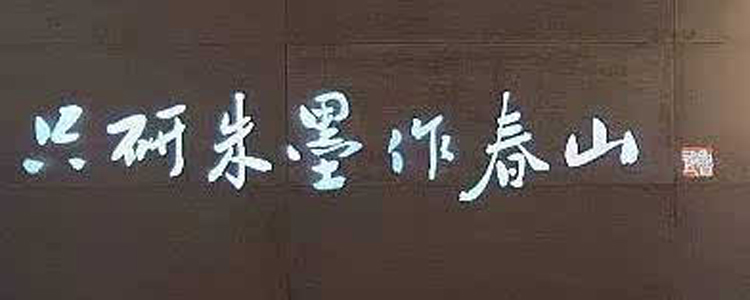 只研朱墨作春山